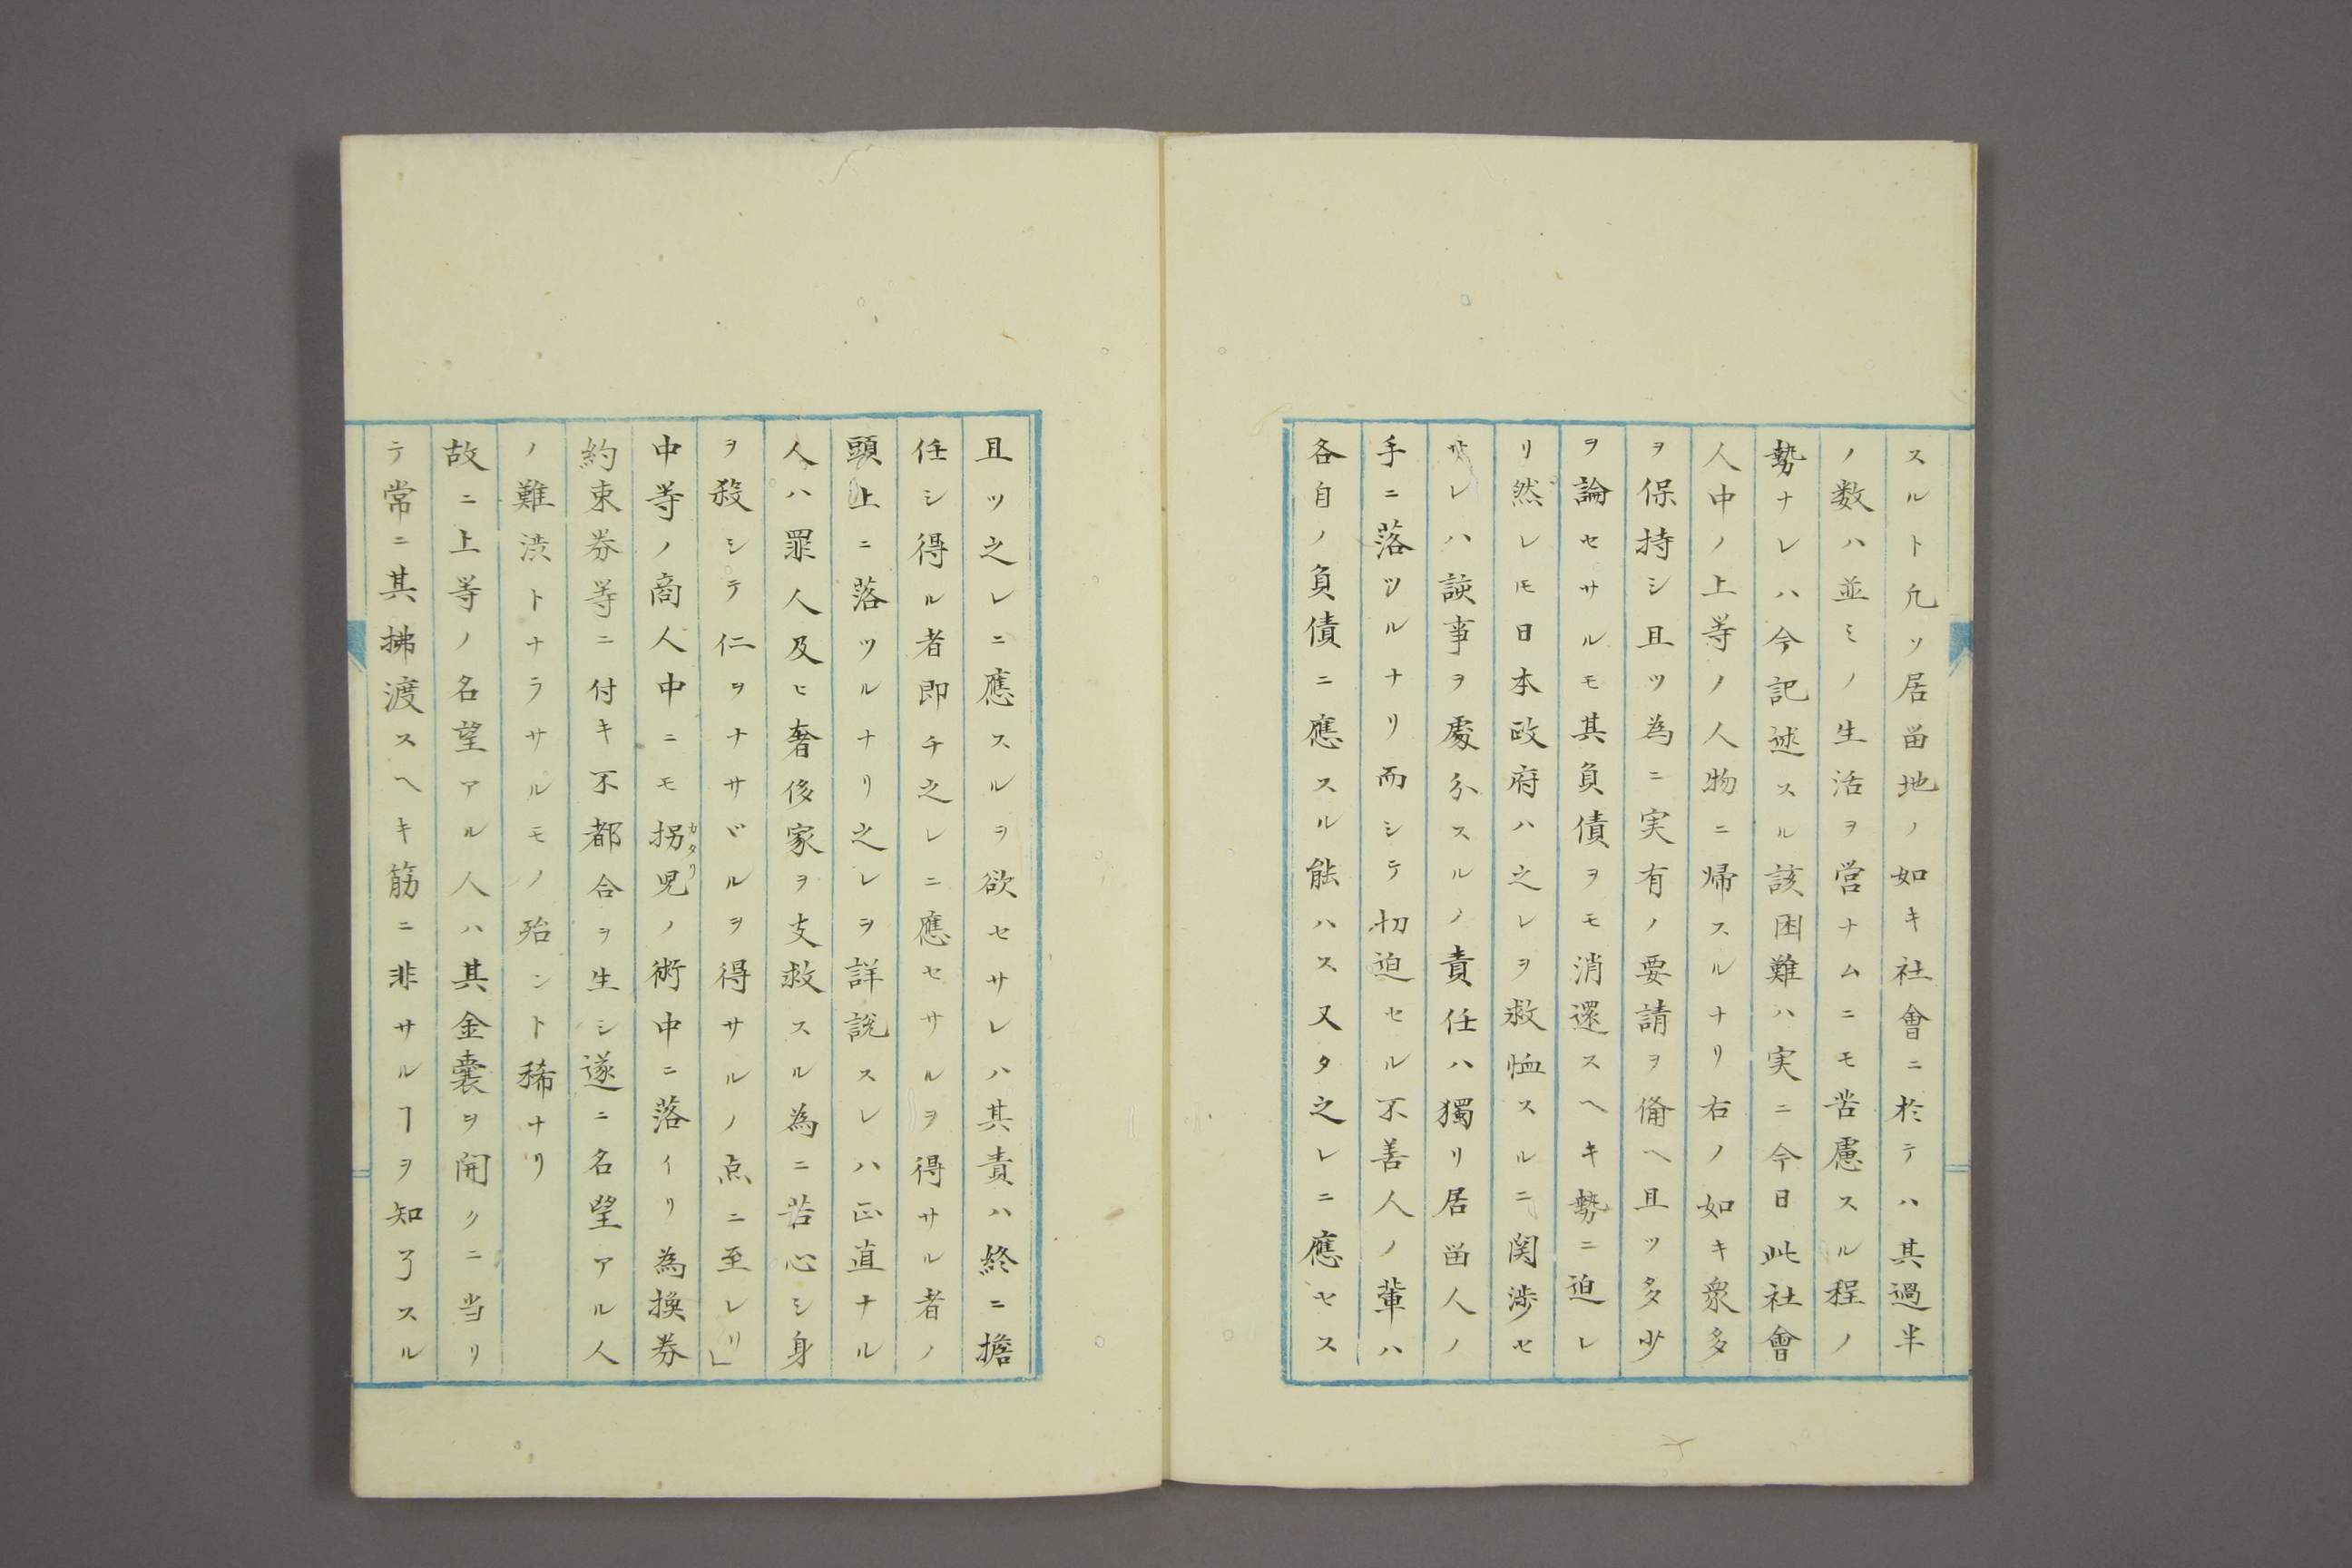 スルト凢ソ居畄地ノ如キ社會ニ於テハ其過半
ノ数ハ並ミノ生活ヲ営ナムニモ苦慮スル程ノ
勢ナレハ今記述スル該困難ハ実ニ今日此社會
人中ノ上等ノ人物ニ帰スルナリ右ノ如キ衆多
ヲ保持シ且ツ為ニ実有ノ要請ヲ俻ヘ且ツ多少
ヲ論セサルモ其負債ヲモ消還スヘキ勢ニ迫レ
リ然レ𪜈日本政府ハ之レヲ救恤スルニ関渉セ
サレハ該事ヲ處分スルノ責任ハ獨リ居畄人ノ
手ニ落ツルナリ而シテ切迫セル不善人ノ輩ハ
各自ノ負債ニ應スル能ハス又タ之レニ應セス
且ツ之レニ應スルヲ欲セサレハ其責ハ終ニ擔
任シ得ル者即チ之レニ應セサルヲ得サル者ノ
頭上ニ落ツルナリ之レヲ詳説スレハ正直ナル
人ハ罪人及ヒ奢侈家ヲ支救スル為ニ苦心シ身
ヲ殺シテ仁ヲナサヾルヲ得サルノ点ニ至レリ」
中等ノ商人中ニモ拐児カタリノ術中ニ落イリ為換券
約束券等ニ付キ不都合ヲ生シ遂ニ名望アル人
ノ難渋トナラサルモノ殆ント稀ナリ
故ニ上等ノ名望アル人ハ其金囊ヲ開クニ当リ
テ常ニ其拂渡スヘキ筋ニ非サルヿヲ知了スル